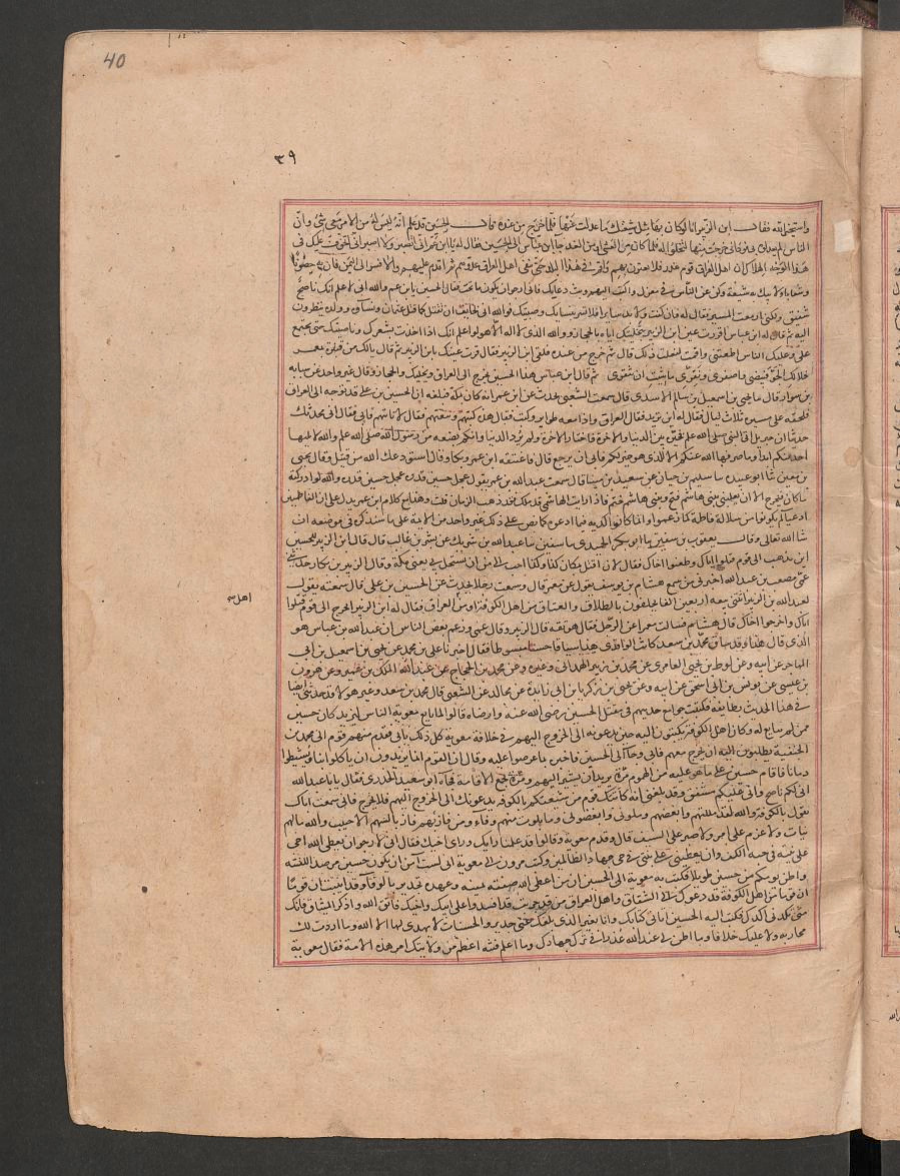 40
٣٩
واستخار الله فقال ابن الزبير اما لو كان بها مثل شيعتك ما عدلت عنها فلما خرج من عنده قال الحسين قد علم انه ليس له من الامر معي شي وان
الناس لم يعدلوا بي فود اني خرجت منها لتخلو له فلما كان من العشي او من الغد جا ابن عباس الى الحسين فقال له يا ابن عم اني اتصبر ولا اصبر اني اتخوف عليك في
هذا الوجه الهلاك ان اهل العراق قوم غدر فلا تغترن بهم واقم في هذا البلد حتى ينفي اهل العراق عدوهم ثم اقدم عليهم والا فسر الى اليمن فان به حصونا
وشعابا ولابيك به شيعة وكن عن الناس في معزل واكتب اليهم وبث دعاتك فاني ارجو ان يكون ما تحب فقال الحسين يا ابن عم والله اني لاعلم انك ناصح
شفيق ولكني ازمعت المسير فقال له فان كنت ولا بد سايرا فلا تسر بنسايك وصبيتك فوالله اني لخايف ان تقتل كما قتل عثمان ونساؤه وولده ينظرون
اليه ثم قال له ابن عباس اقررت عين ابن الزبير بتخليتك اياه بالحجاز ووالله الذي لا اله الا هو لو اعلم انك اذا اخذت بشعرك وناصيتك حتى يجتمع
علي وعليك الناس اطعتني واقمت لفعلت ذلك قال ثم خرج من عنده فلقي ابن الزبير فقال قرت عينك يا ابن الزبير ثم قال يا لك من قبرة بمعمر
خلا لك الجو فبيضي واصفري ونقري ما شيت ان تنقري ثم قال ابن عباس هذا الحسين يخرج الى العراق ويخليك والحجاز وقال غير واحد عن شبابه
بن سوار قال ما يحيى بن اسمعيل بن سالم الاسدي قال سمعت الشعبي يحدث عن ابن عمر انه كان بمكة فبلغه ان الحسين بن علي قد توجه الى العراق
فلحقه على مسيره ثلاث ليال فقال له اين تريد فقال العراق واذا معه طوامير وكتب فقال هذه كتبهم وبيعتهم فقال لا تاتهم فابى فقال اني محدثك
حديثا ان جبريل اتى النبي صلى الله عليه فخيره بين الدنيا والاخرة فاختار الاخرة ولم يرد الدنيا وانكم بضعة من رسول الله صلى الله عليه والله لا يليها
احد منكم ابدا وما صرفها الله عنكم الا للذي هو خير لكم فابى ان يرجع قال فاعتنقه ابن عمر وبكا وقال استودعك الله من قتيل وقال يحيى
بن معين ثنا ابو عبيده سا سليم بن حيان عن سعيد بن مينا قال سمعت عبد الله بن عمر يقول عجل حسين قدره عجل حسين قدره والله لو ادركته
ما كان ليخرج الا ان يغلبني ببني هاشم فتح وببني هاشم ختم فاذا رايت الهاشمي قد ملك فقد ذهب الزمان قلت وهذا مع كلام ابن عمر يدل على ان الفاطميين
ادعيا لم يكونوا من سلالة فاطمة كما نص عليه غير واحد من الايمة على ما سنذكره في موضعه ان
شا الله تعالى وقال يعقوب بن سفين ما ابو بكر الحميدي ما سفين ما عبد الله بن شريك عن بشر بن غالب قال قال ابن الزبير للحسين
اين تذهب الى قوم قتلوا اباك وطعنوا اخاك فقال لان اقتل بمكان كذا وكذا احب الي من ان تستحل بي يعني مكة وقال الزبير بن بكار حدثني
عمي مصعب بن عبد الله اخبرني من سمع هشام بن يوسف يقول عن معمر قال وسمعت رجلا يحدث عن الحسين بن علي قال سمعته يقول
اهل صح
لعبد الله بن الزبير اتتني بيعة اربعين الفا يحلفون بالطلاق والعتاق من اهل الكوفة او من العراق فقال له ابن الزبير اتخرج الى قوم قتلوا
اباك واخرجوا اخاك قال هشام فسالت معمرا عن الرجل فقال هو ثقة قال الزبير وقال عمي وزعم بعض الناس ان عبد الله بن عباس هو
الذي قال هذا وقد ساق محمد بن سعد كاتب الواقدي هذا سياقا حسنا مبسوطا فقال اخبرنا علي بن محمد عن يحيى بن اسمعيل بن ابي
المهاجر عن ابيه وعن لوط بن يحيى العامري عن محمد بن بشير الهمداني وغيره وعن محمد بن الحجاج عن عبد الملك بن عمير وعن هرون
بن عيسى عن يونس بن ابي اسحق عن ابيه وعن يحيى بن زكريا بن ابي زايدة عن مجالد عن الشعبي قال محمد بن سعد وغير هولا قد حدثني ايضا
في هذا الحديث بطايفة فكتبت جوامع حديثهم في مقتل الحسين رضي الله عنه وارضاه قالوا لما بايع معوية الناس ليزيد كان حسين
ممن لم يبايع له وكان اهل الكوفة يكتبون اليه حين يدعونه الى الخروج اليهم في خلافة معوية كل ذلك يابى فقدم منهم قوم الى محمد بن
الحنفية يطلبون اليه ان يخرج معهم فابى وجا الى الحسين فاخبره بما عرضوا عليه وقال ان القوم انما يريدون ان ياكلوا بنا ويشيطوا
دماءنا فاقام حسين على ما هو عليه من الهموم مرة يريد ان يسير اليهم ومرة يجمع الاقامة فجاه ابو سعيد الخدري فقال يا ابا عبد الله
اني لكم ناصح واني عليكم مشفق وقد بلغني انه كاتبك قوم من شيعتكم بالكوفة يدعونك الى الخروج اليهم فلا تخرج فاني سمعت اباك
يقول بالكوفة والله لقد مللتهم وابغضتهم وملوني وابغضوني وما بلوت منهم وفاء ومن فاز بهم فاز بالسهم الاخيب والله ما لهم
نيات ولا عزم على امر ولا صبر على السيف قال وقدم معوية وقالوا قد علمنا رايك وراي اخيك فقال اني لارجو ان يعطي الله اخي
على نيته في حبه الكف وان يعطيني على نيتي في حبي جهاد الظالمين وكتب مرون الى معوية اني لست آمن ان يكون حسين مرصدا للفتنة
واظن يومكم من حسين طويلا فكتب معوية الى الحسين ان من اعطى الله صفقة يمينه وعهده لجدير بالوفا وقد انبيت ان قوما
من اهل الكوفة قد دعوك الى الشقاق واهل العراق من قد جربت قد افسدوا على ابيك واخيك فاتق الله واذكر الميثاق فانك
متى تكدني اكدك فكتب اليه الحسين اتاني كتابك وانا بغير الذي بلغك عني جدير والحسنات لا يهدي لها الا الله وما اردت لك
محاربة ولا عليك خلافا وما اظن لي عند الله عذرا في ترك جهادك وما اعلم فتنة اعظم من ولايتك امر هذه الامة فقال معوية